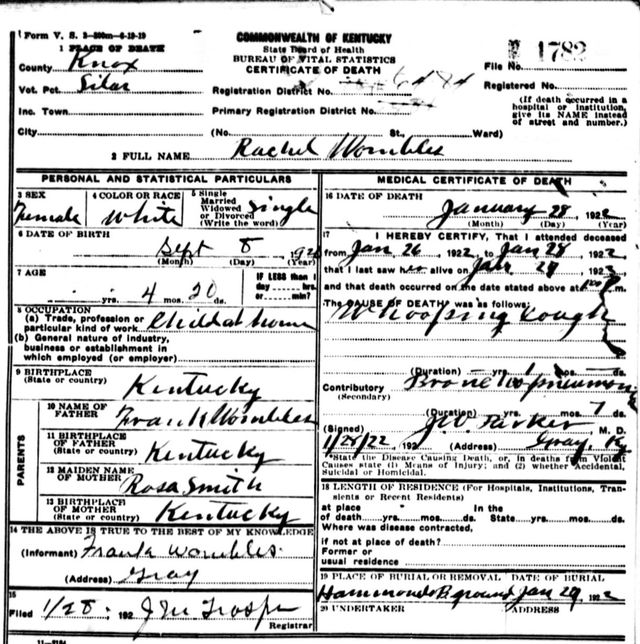 Form V. S. 2-200m-6-19-19
COMMONWEALTH OF KENTUCKY
State Board of Health
BUREAU OF VITAL STATISTICS
CERTIFICATE OF DEATH
File No. 1782
Registered No.
(If death occurred in a hospital or institution, give its NAME instead of street and number.)
1 PLACE OF DEATH
County Knox
Vot. Pct. Siler
Inc. Town
City
Registration District No.
Primary Registration District No.
(No. St., Ward)
2 FULL NAME Rachel Wombles
PERSONAL AND STATISTICAL PARTICULARS
3 SEX Female
4 COLOR OR RACE White
5 Single Married Widowed or Divorced (Write the word) Single
6 DATE OF BIRTH
Sept 8 192
(Month) (Day) (Year)
7 AGE
IF LESS than 1 day hrs. or min.?
yrs. 4 mos. 20 ds.
8 OCCUPATION
(a) Trade, profession or particular kind of work Child at home
(b) General nature of industry, business or establishment in which employed (or employer)
9 BIRTHPLACE
(State or country) Kentucky
PARENTS
10 NAME OF FATHER Frank Wombles
11 BIRTHPLACE OF FATHER
(State or country) Kentucky
12 MAIDEN NAME OF MOTHER Rosa Smith
13 BIRTHPLACE OF MOTHER
(State or country) Kentucky
14 THE ABOVE IS TRUE TO THE BEST OF MY KNOWLEDGE
(Informant) Frank Wombles
(Address) Gray
15
Filed 1/28, 192 J M
Registrar
11-3184
MEDICAL CERTIFICATE OF DEATH
16 DATE OF DEATH
January 28 1922
(Month) (Day) (Year)
17 I HEREBY CERTIFY, That I attended deceased
from Jan 26, 1922, to Jan 28, 1922
that I last saw her alive on Jan 28, 1922
and that death occurred on the date stated above at m.
The CAUSE OF DEATH* was as follows:
Whooping Cough
(Duration) yrs. 1 mos. ds.
Contributory Broncho pneumonia
(Secondary)
(Duration) yrs. mos. 7 ds.
(Signed) J.W. Parker M. D.
1/28/22 192 (Address) Gray, Ky
*State the Disease Causing Death, or, in deaths from Violent Causes state (1) Means of Injury; and (2) whether Accidental, Suicidal or Homicidal.
18 LENGTH OF RESIDENCE (For Hospitals, Institutions, Transients or Recent Residents)
at place of death yrs. mos. ds. In the State yrs. mos. ds.
Where was disease contracted,
if not at place of death?
Former or usual residence
19 PLACE OF BURIAL OR REMOVAL DATE OF BURIAL
Hammonds B ground Jan 29 1922
20 UNDERTAKER ADDRESS